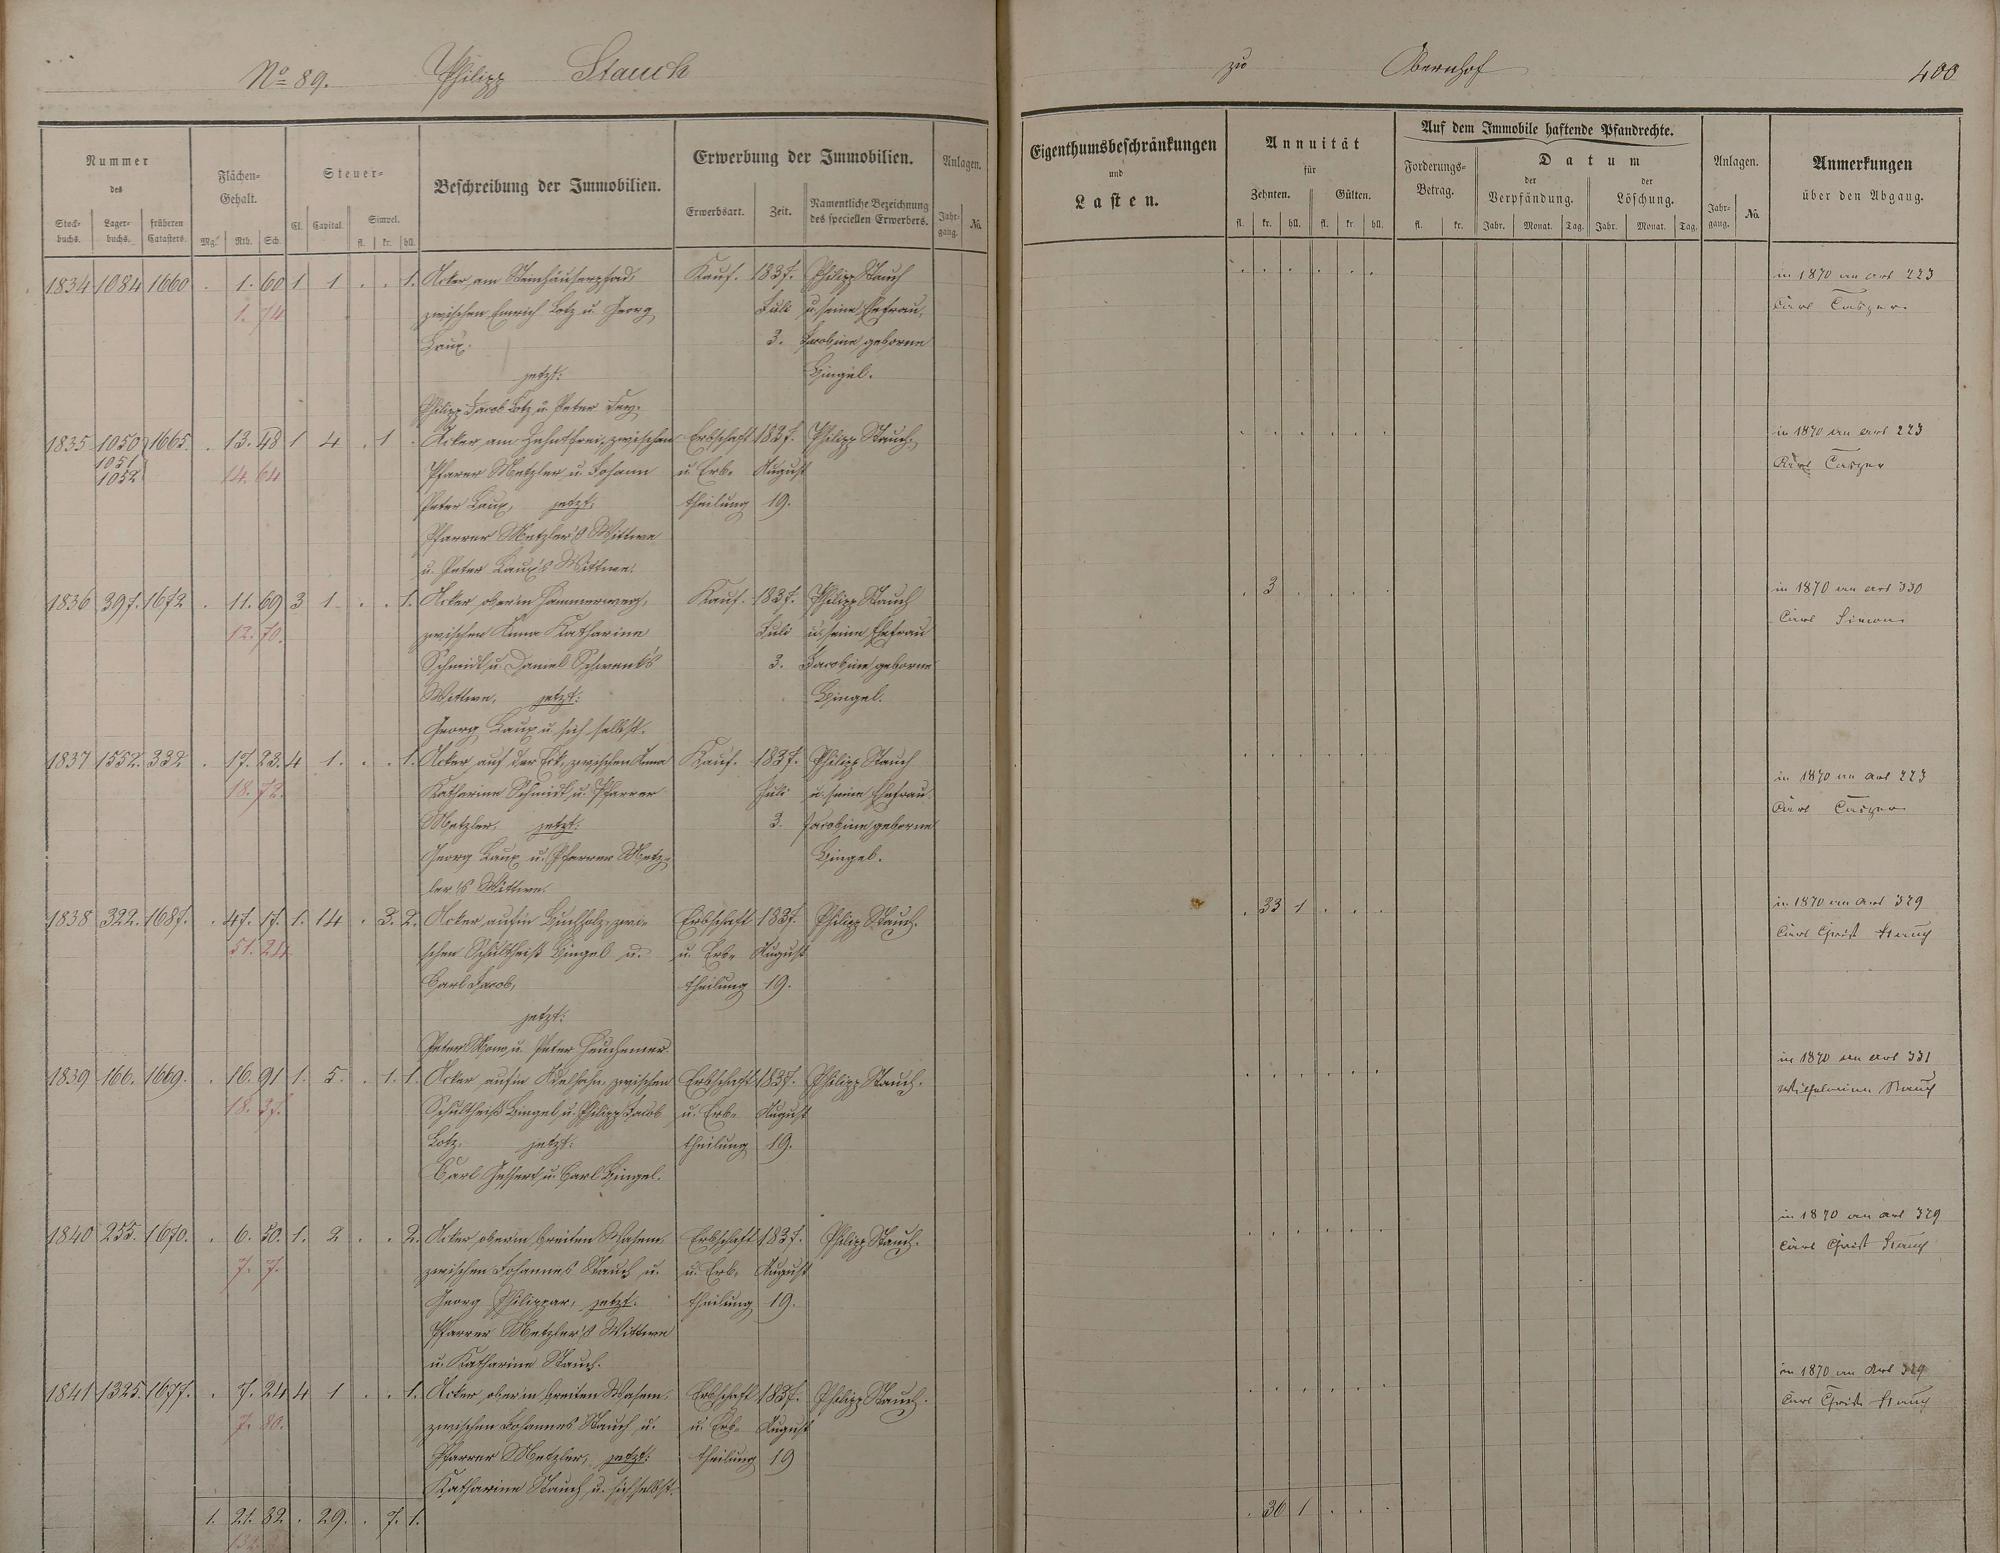 No 89. Philipp Stauch
zu Obernhof 400
Nummer
des
Stock-buchs. Lager-buchs. früheren Catasters.
Flächen-Gehalt.
Mg. Rth. Sch.
Steuer-
Cl. Capital. Simpel.
fl. kr. hll.
Beschreibung der Immobilien.
Erwerbung der Immobilien.
Erwerbsart. Zeit. Namentliche Bezeichnung des speciellen Erwerbers.
Anlagen.
Jahr-gang. No.
Eigenthumsbeschränkungen
und
Lasten.
Annuität
für
Zehnten. Gülten.
fl. kr. hll. fl. kr. hll.
Auf dem Immobile haftende Pfandrechte.
Forderungs-Betrag.
fl. kr.
Datum
der Verpfändung. der Löschung.
Jahr. Monat. Tag. Jahr. Monat. Tag.
Anlagen.
Jahr-gang. No.
Anmerkungen
über den Abgang.
1834 1084 1660 . 1. 60 1 1 . . 1. Acker am Steinhäuserpfad, Kauf. 1837. Philipp Stauch in 1870 an art 223
1. 74 zwischen Emrich Lotz u. Georg Juli u. seine Ehefrau, Carl Casper
Laux. 3. Jacobine geborne
jetzt: Bingel.
Philipp Jacob Lotz u. Peter
1835 1050 1665. . 13. 48 1 4 . 1 . Acker am zwischen Erbschaft 1837. Philipp Stauch. in 1870 an art 223
1051
1052 14. 64 Pfarrer Metzler u. Johann u. Erb- August Carl Casper
Peter Laux, jetzt: theilung 19.
Pfarrer Metzler's Wittwe
u. Peter Laux's Wittwe.
1836 397. 1672 . 11. 69 3 1 . . 1. Acker oberm Hammerweg, Kauf. 1837. Philipp Stauch . 3 . . . . in 1870 an art 330
12. 70. zwischen Anna Katharine Juli u. seine Ehefrau Carl Simon
Schmidt u. Daniel Schwenk's 3. Jacobine geborne
Wittwe, jetzt: Bingel.
Georg Laux u. sich selbst.
1837 1552. 332 . 17. 23. 4 1. . . 1. Acker auf der Eck, zwischen Anna Kauf. 1837. Philipp Stauch
18. 72. Katharine Schmidt u. Pfarrer Juli u. seine Ehefrau in 1870 an art 223
Metzler, jetzt: 3. Jacobine geborne Carl Casper
Georg Laux u. Pfarrer Metz- Bingel.
ler's Wittwe.
1838 322. 1687. . 47. 17. 1. 14 . 3. 2. Acker aufm Buchholz, zwi- Erbschaft 1837. Philipp Stauch. . 33 1 . . . in 1870 an art 329
51. 24 schen Schultheiß Bingel u. u. Erb- August Carl Christ Stauch
Carl Jacob, theilung 19.
jetzt:
Peter u. Peter Heuchemer.
1839 166. 1669. . 16. 91 1. 5. . 1. 1. Acker aufm zwischen Erbschaft 1837. Philipp Stauch. in 1870 an art 331
18. 37. Schultheiß Bingel u. Philipp Jacob u. Erb- August Wilhelmine Stauch
Lotz, jetzt: theilung 19.
Carl u. Carl Bingel.
1840 255. 1670. . 6. 50. 1. 2 . . 2. Acker oberm breiten Wasem, Erbschaft 1837. Philipp Stauch. in 1870 an art 329
7. 7. zwischen Johannes Stauch u. u. Erb- August Carl Christ Stauch
Georg Philippar, jetzt: theilung 19.
Pfarrer Metzler's Wittwe
u. Katharine Stauch.
1841 1325. 1677. . 7. 24 4 1 . . 1. Acker oberm breiten Wasem, Erbschaft 1837. Philipp Stauch. in 1870 an art 329
7. 80. zwischen Johannes Stauch u. u. Erb- August Carl Christ Stauch
Pfarrer Metzler, jetzt: theilung 19
Katharine Stauch u. sich selbst.
1. 21. 82 . 29. . 7. 1. . 36 1 . . .